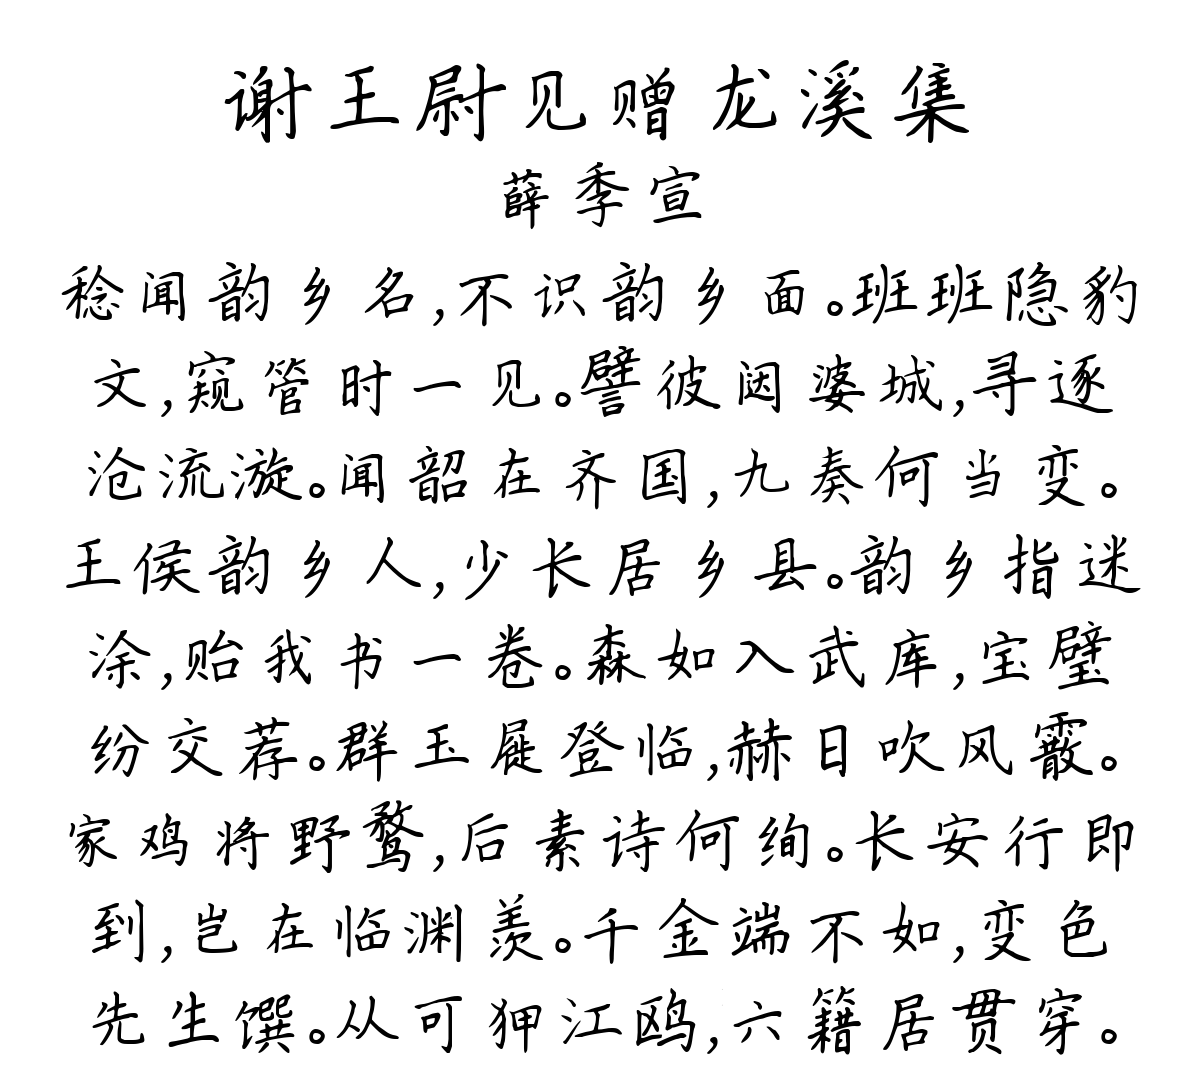 谢王尉见赠龙溪集
薛季宣
稔闻韵乡名,不识韵乡面。班班隐豹
文,窥管时一见。譬彼闼婆城,寻逐
沧流漩。闻韶在齐国,九奏何当变。
王侯韵乡人,少长居乡县。韵乡指迷
涂,贻我书一卷。森如入武库,宝璧
纷交荐。群玉屣登临,赫日吹风霰。
家鸡将野鹜,后素诗何绚。长安行即
到,岂在临渊羡。千金端不如,变色
先生馔。从可狎江鸥,六籍居贯穿。